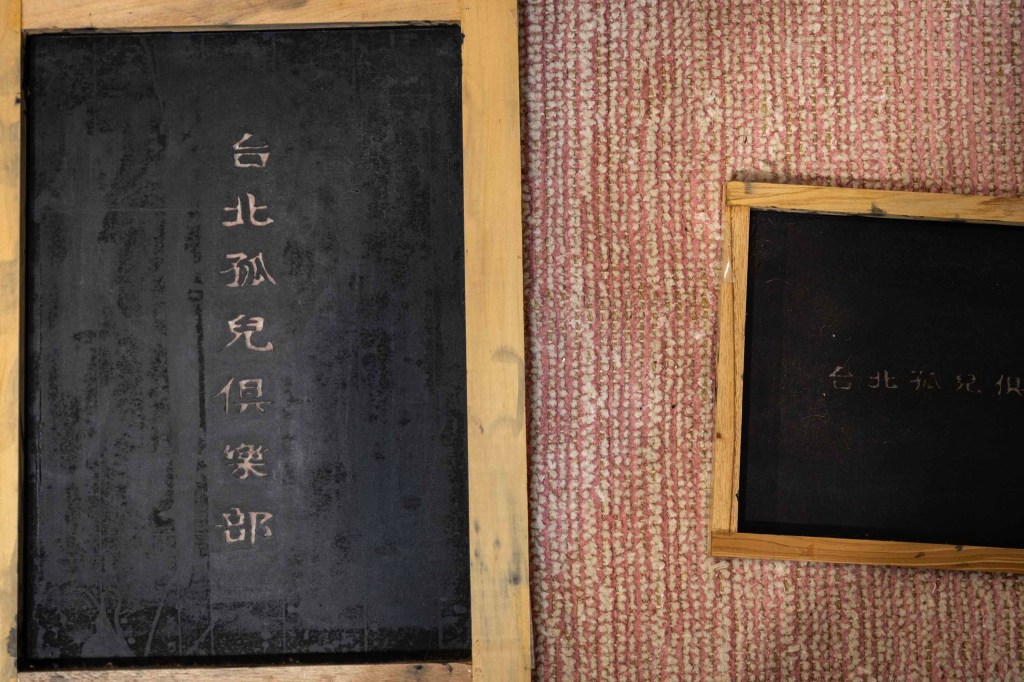 台北孤兒俱樂部
台北孤兒俱